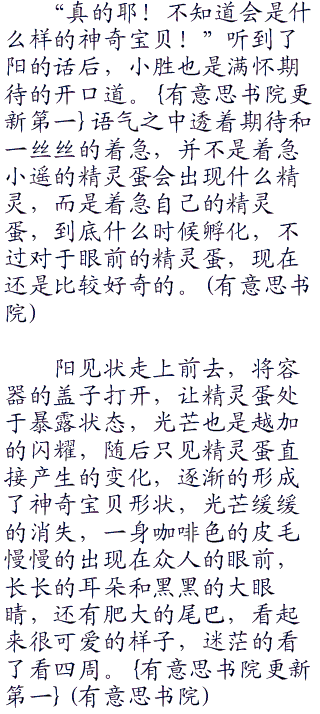 “真的耶！不知道会是什
么样的神奇宝贝！”听到了
阳的话后，小胜也是满怀期
待的开口道。{有意思书院更
新第一}语气之中透着期待和
一丝丝的着急，并不是着急
小遥的精灵蛋会出现什么精
灵，而是着急自己的精灵
蛋，到底什么时候孵化，不
过对于眼前的精灵蛋，现在
还是比较好奇的。(有意思书
院)
阳见状走上前去，将容
器的盖子打开，让精灵蛋处
于暴露状态，光芒也是越加
的闪耀，随后只见精灵蛋直
接产生的变化，逐渐的形成
了神奇宝贝形状，光芒缓缓
的消失，一身咖啡色的皮毛
慢慢的出现在众人的眼前，
长长的耳朵和黑黑的大眼
睛，还有肥大的尾巴，看起
来很可爱的样子，迷茫的看
了看四周。{有意思书院更新
第一}(有意思书院)